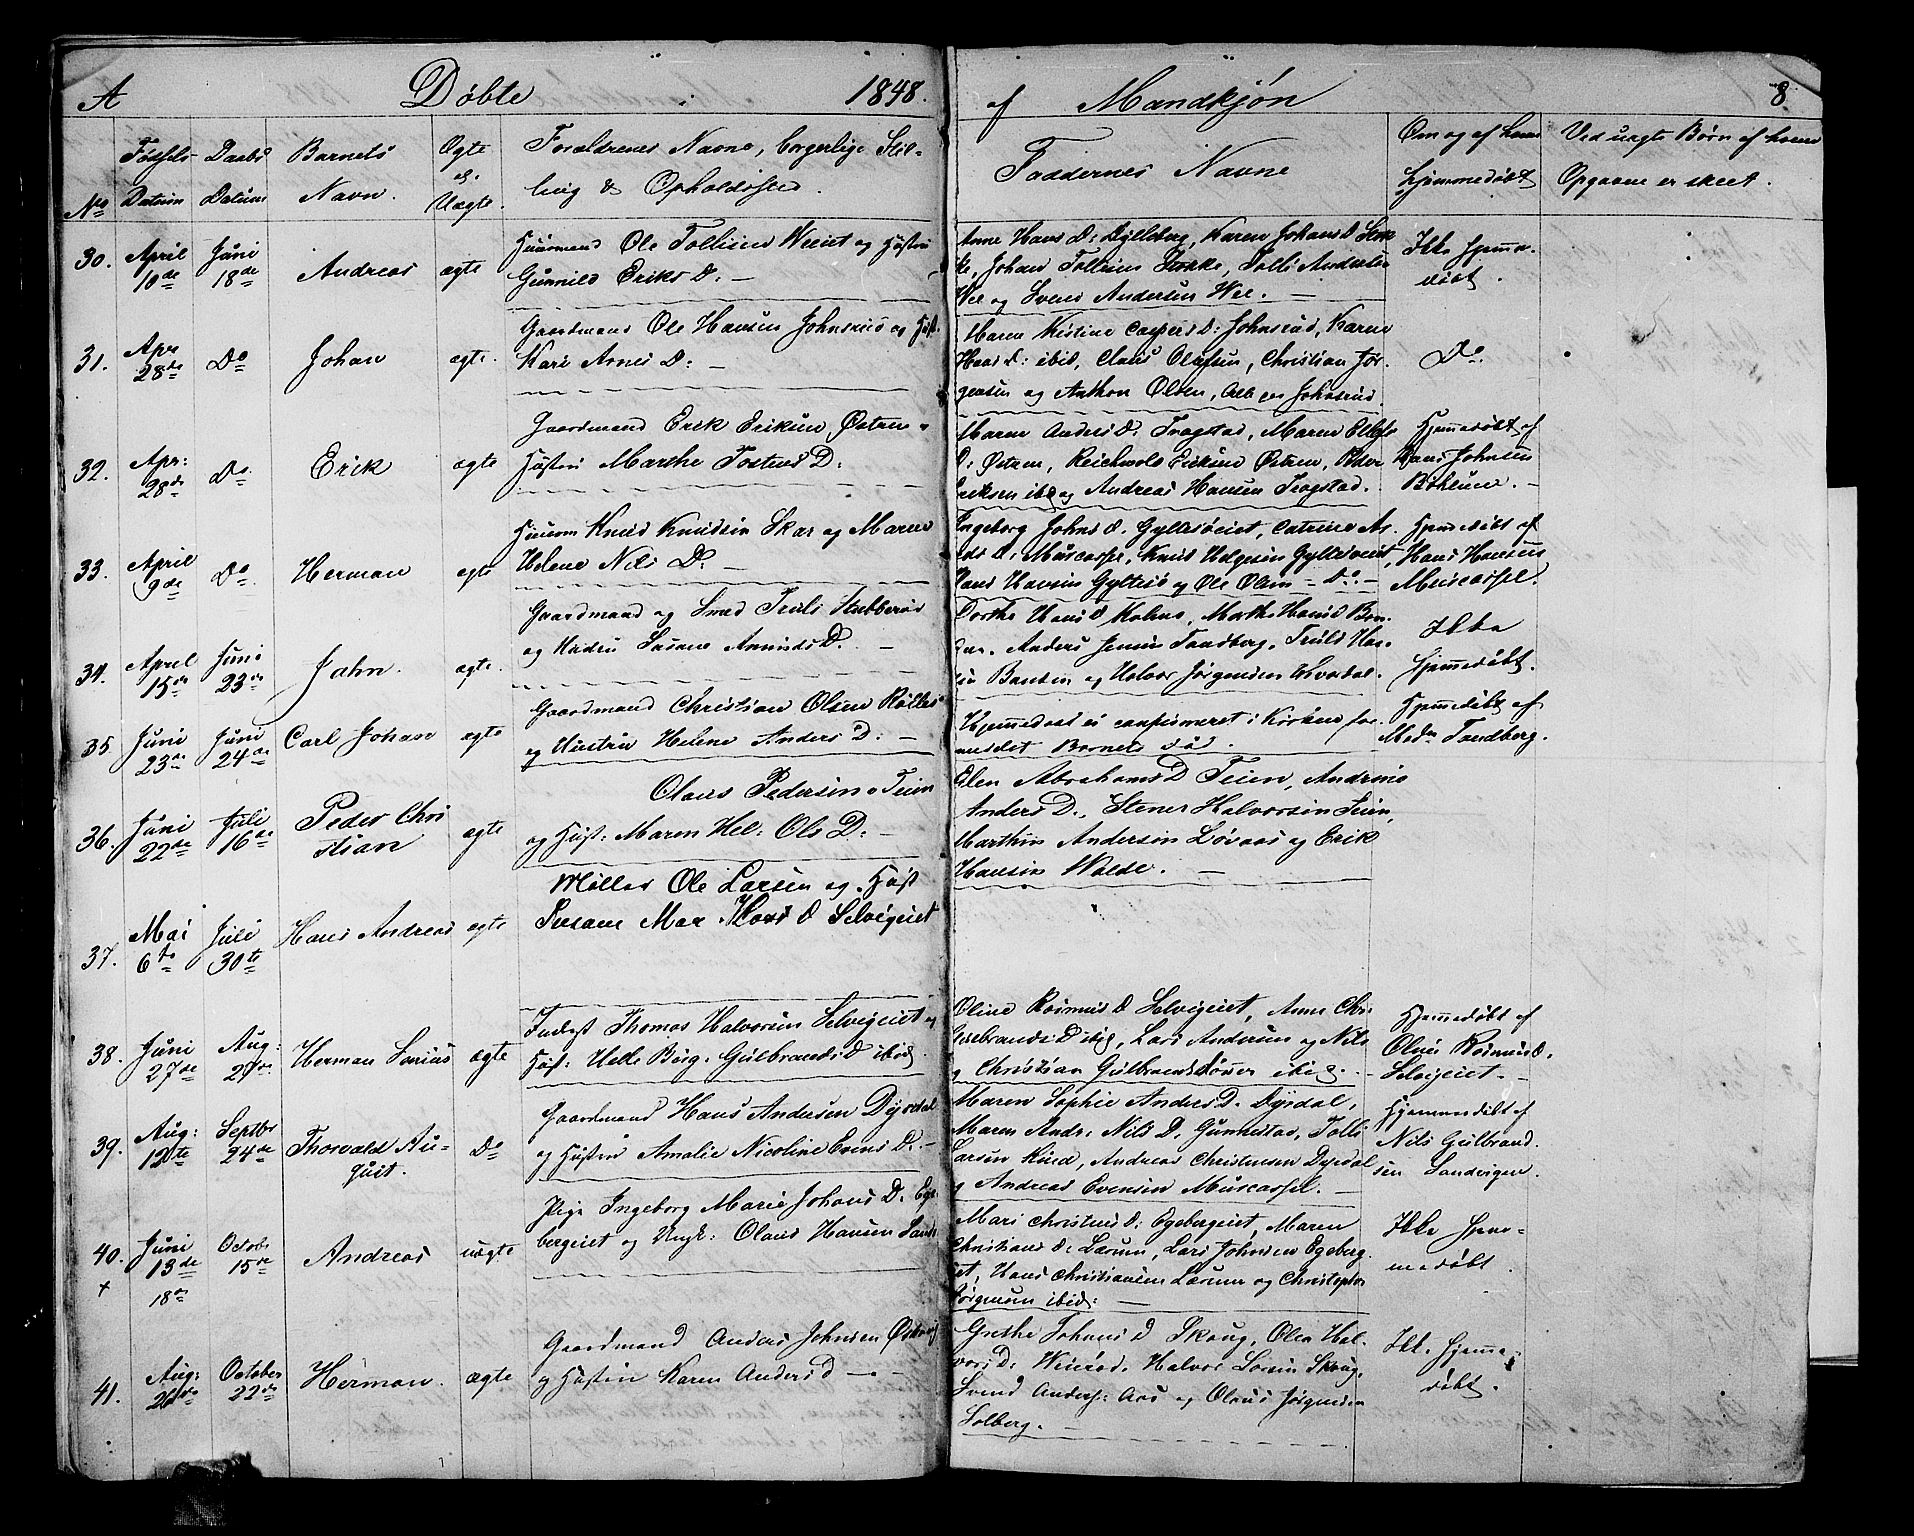 A Døbte i 1848. af Mandkjøn 8
No
Fødsels Datum
Daabs Datum
Barnets Navn.
Ægte el. Uægte.
Forældrenes Navne, borgerlige Stilling & Opholdssted.
Faddernes Navne
Om og af hvem hjemmedøbt
Ved uægte Børn af hvem Opgaven er skeet.
30. April 10de Juni 18de Andreas ægte
Huusmand Ole Tollisen Weeiet og Hustru
Gunnild Eriks D. —
Anne Hans D: Dylleberg, Karen Johans D Stok
ke, Johan Tollisen Stokke, Tolli Andersen
Wee og Svend Andersen Wee. —
Ikke hjemme-
døbt.
31. Apr 28de Do Johan ægte.
Gaardmand Ole Hansen Johnsrud og Hust.
Kari Arnes D: —
Maren Kistine Caspers D: Johnsrud, Karen
Hans D: ibid, Claus Olufsen, Christian Jør-
gensen og Anthon Olsen, Alle paa Johnsrud.
Do.
32. Apr: 28de Do. Erik ægte
Gaardmand Erik Eriksen Østren
Hustru Marthe Tostens D:
Maren Anders D: Trogstad, Maren Ellefs
D: Østren, Reichwold Eriksen Østren, Peder
Eriksen ibid og Andreas Hansen Trogstad.
Hjemmedøbt af
Hans Johnsen
Bohlum. —
33. April 9de Do. Herman ægte
Huusm Knud Knudsen Skar og Maren
Helene Nils D. —
Ingeborg Johns D. Gyltesøeiet, Catrine An-
ds D: Muscasspe, Knud Helgesen Gyltesøeiet,
Hans Hansen Gyltesø og Ole Olsen — Do. —
Hjemmedøbt af
Hans Hansen
Muscassel.
34. April 15de Juni 23de Jahn. ægte.
Gaardmand og Smed Truls Stubberød
og Hustru Susane Amunds D. —
Dorthe Hans D Holme, Marthe Hans D Ban-
sen. Anders Jensen Tandberg, Truls Han-
sen Bansen og Halvor Jørgensen Hvordal.
Ikke
hjemmedøbt.
35. Juni 23de Juni 24de Carl Johan ægte
Gaardmand Christian Olsen Rølles
og Hustru Helene Anders D: —
Hjemmedaab ei confirmeret i Kirken for-
medelst Barnets Død.
Hjemmedøbt af
Mad. Tandberg.
36. Juni 22de Juli 16de Peder Chri
stian ægte
Olaus Pedersen Teien
og Hust: Maren Hel: Ols D. —
Elen Abrahams D Teien, Andrine
Anders D., Stener Halvorsen Teien,
Marthin Andersen Løvaas og Erik
Hansen Wolde. —
37. Mai 6te Juli 30te Hans Andreas ægte
Møller Ole Larsen og Hust
Susane Mar. Hans D Selvigeiet
38. Juni 27de Aug: 27de Herman Sarius ægte
Inderst Thomas Halvorsen Selvigeiet og
Hust: Helle Børg. Gulbrands D ibid.
Oline Rasmus D Selvigeiet, Anne Chr.
Gulbrands D ibid, Lars Andersen og Nils
og Christian Gulbrandsønner ibid. —
Hjemmedøbt af
Oline Rasmus D.
Selvigeiet —
39. Aug: 12te Septbr 24de Thorvald Au-
gust. Do
Gaardmand Hans Andersen Dyrdal
og Hustru Amalie Nicoline Evens D. —
Maren Sophie Anders D. Dyrdal,
Maren Andr: Nils D. Gunnestad, Tolli
Larsen Rud, Andreas Christensen Dyrdal
og Andreas Evensen Muscassel. —
Hjemmedøbt af
Nils Gulbrand-
sen Sandvigen.
40. + Juni 13de 18de Octobr 15de Andreas uægte
Pige Ingeborg Marie Johans D. Ege
bergeiet og Ungk: Olaus Hansen Sand
Mari Christens D: Egebergeiet, Maren
Christians D: Lærum, Lars Johnsen Egeberg-
et, Hans Christiansen Lærum og Christopher
Jørgensen ibid: —
Ikke hjem-
medøbt.
41. Aug: 26de October 22de Herman. ægte
Gaardmand Anders Johnsen Østvig
og Hustru Karen Anders D — —
Grethe Johans D Skoug, Olea Hal-
vors D. Weierød. Halvor Larsen Skoug,
Svend Anders: Aas og Olaus Jørgensen
Solberg. —
Ikke hjemme-
døbt.